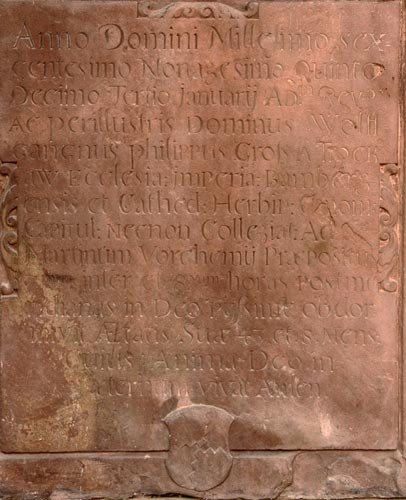 Anno Domini Millesimo sex
centesimo Nonagesimo Quinto
Decimo Tertio Januarij Adm. Reve
ac Perillustris Dominus Wolff
gangus Philippus Gros A Trock
Ecclesia: Imperia: Bamberg
ensis et Cathed: Herbip: Canon:
Capitul: Necnon Collegiat: Ad
Martinum Vorchemij Præpositus
inter et horas Postme
ridianas in Deo obdor
mivit Ætatis Suæ 47 et 8 Mens
Cuius Anima Deo in
æternum vivat Amen